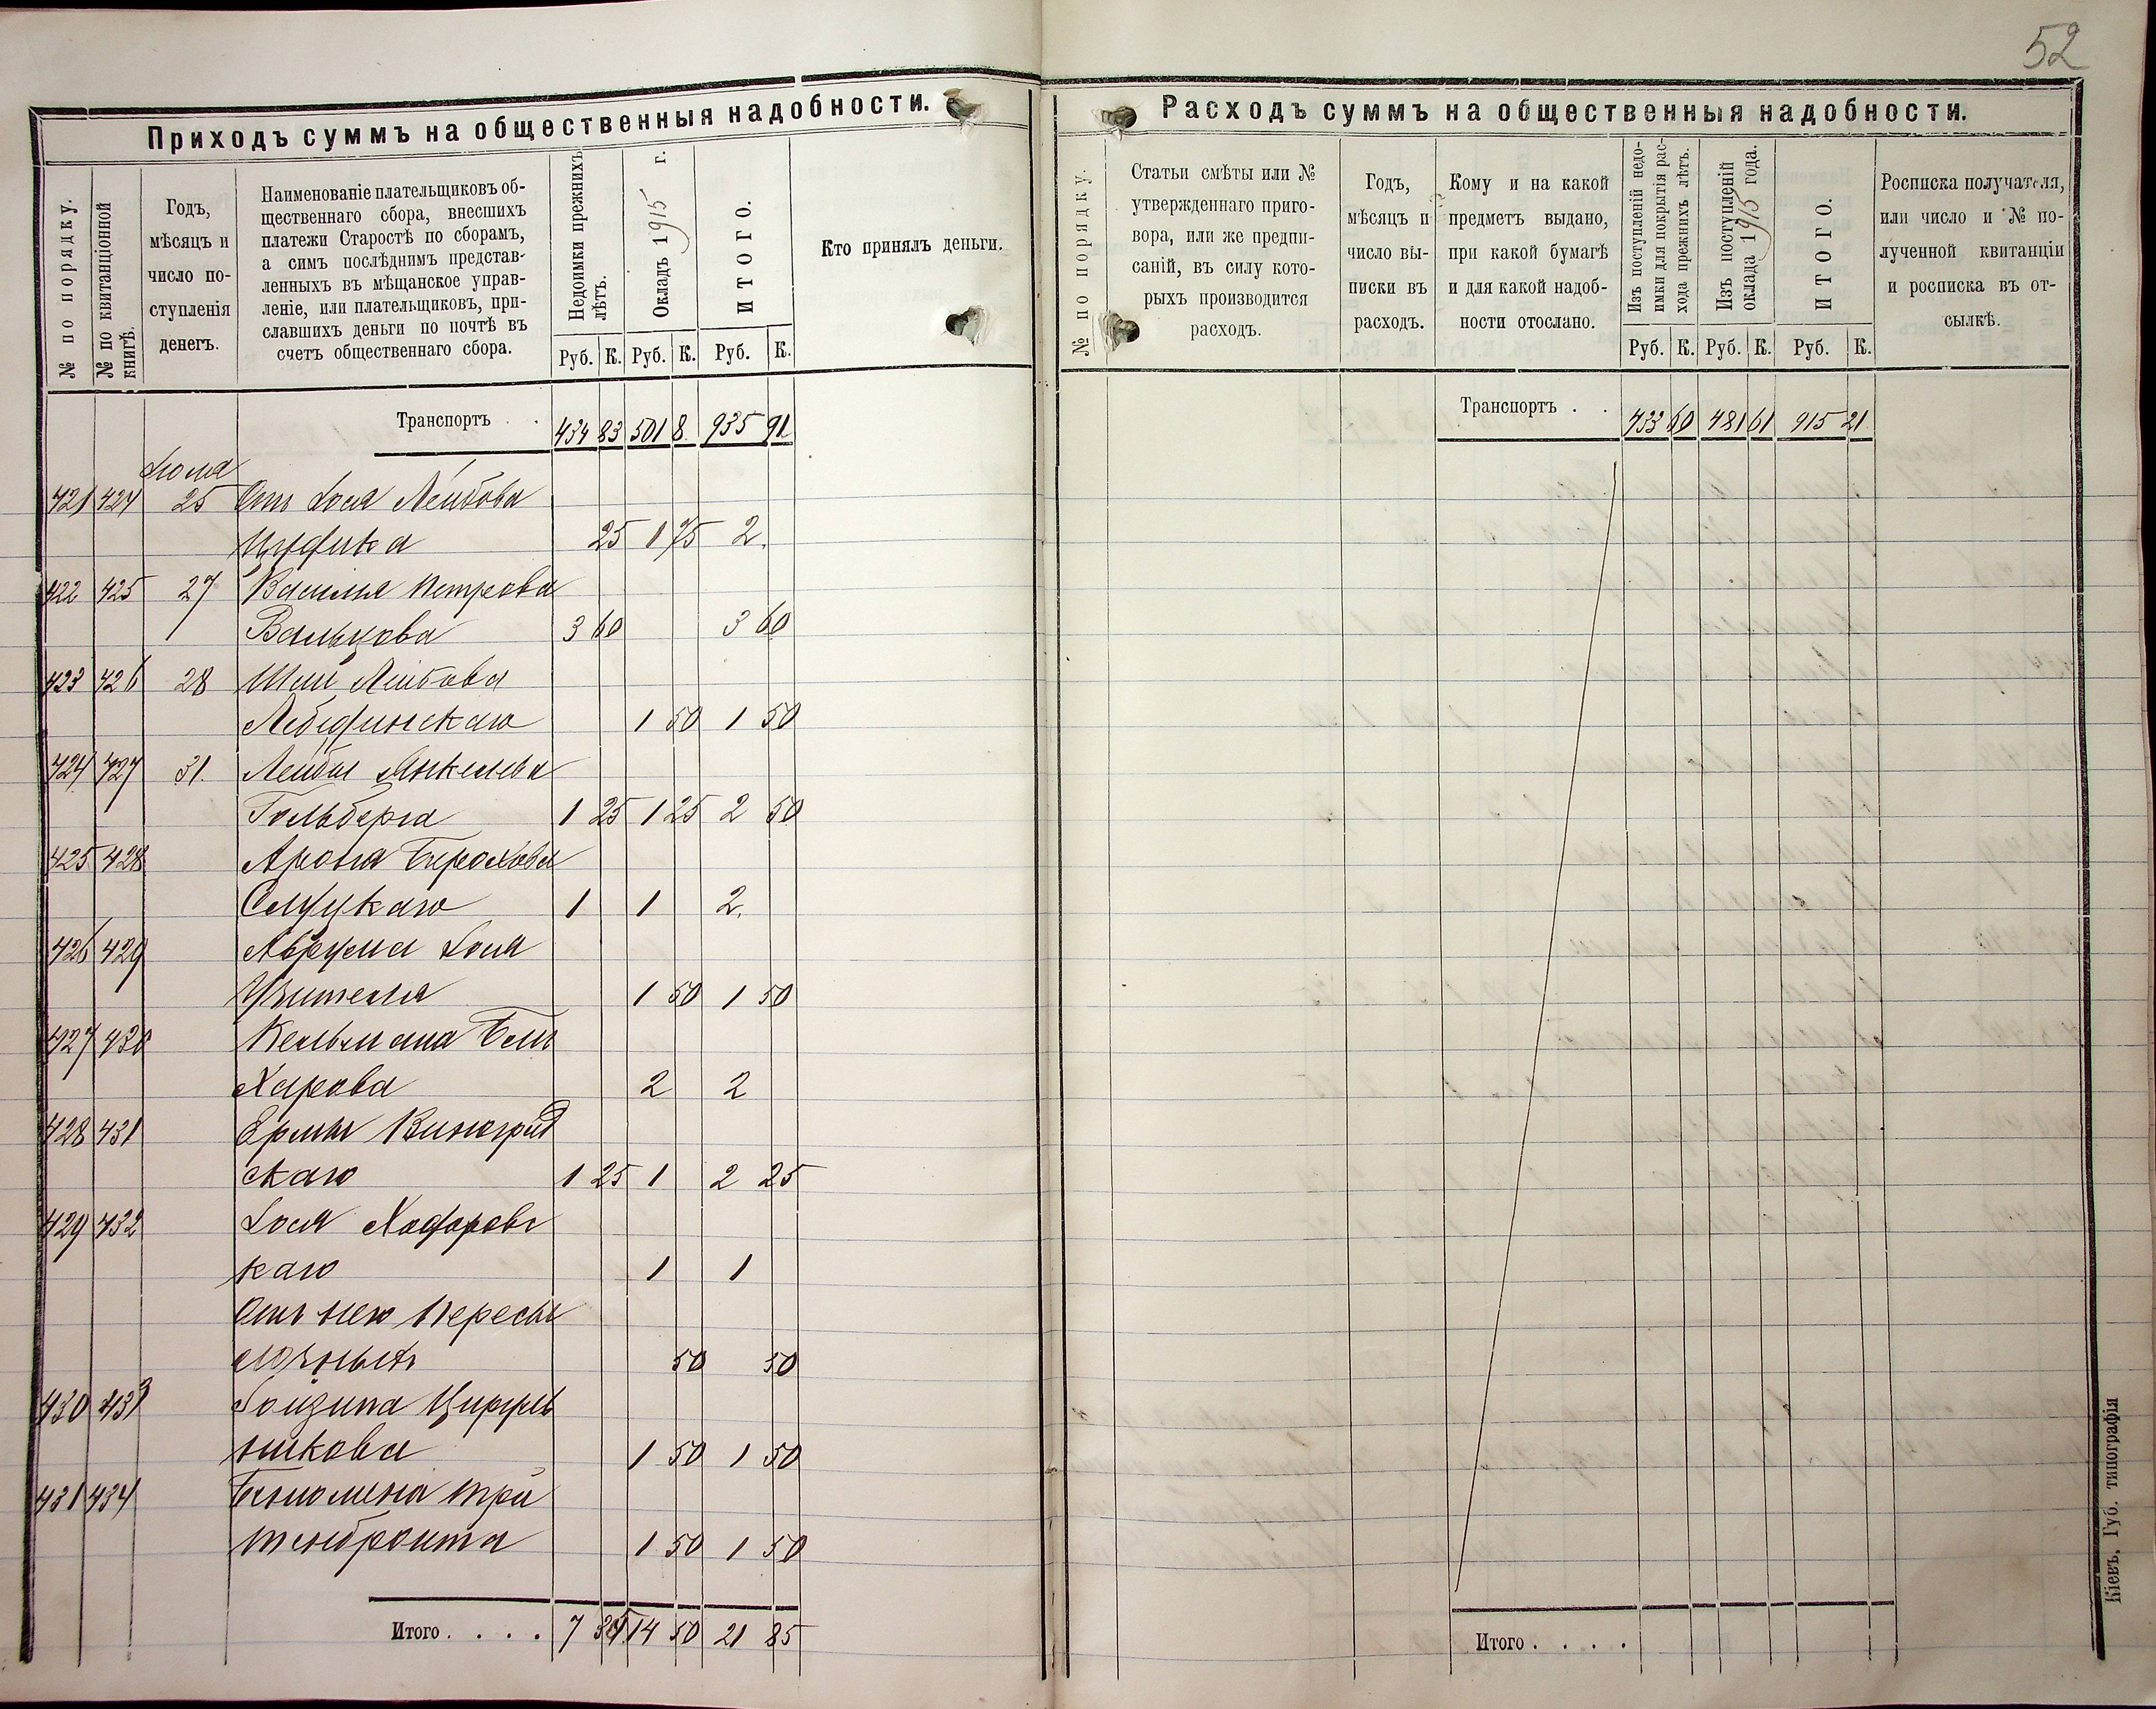 52
Приходъ суммъ на общественныя надобности.
№ по порядку.
№ по квитанціонной
книгѣ.
Годъ,
мѣсяцъ и
число по-
ступленія
денегъ.
Наименованіе плательщиковъ об-
щественнаго сбора, внесшихъ
платежи Старостѣ по сборамъ,
а симъ послѣднимъ представ-
ленныхъ въ мѣщанское управ-
леніе, или плательщиковъ, при-
славшихъ деньги по почтѣ въ
счетъ общественнаго сбора.
Недоимки прежнихъ
лѣтъ.
Окладъ 1915 г.
ИТОГО.
Кто принялъ деньги.
Руб. К. Руб. К. Руб. К.
Транспортъ . . 434 83 501 8 935 91
Іюля
421 424 25 Отъ Іося Лейбова
25 1 75 2.
422 425 27 Василія Петрова
Вальцова 3 60 3 60
423 426 28 Шаи Лейбова
Лебединскаго 1 50 1 50
424 427 31. Лейбы Янкелева
Гольберга 1 25 1 25 2 50
425 428 Арона Берохова
Слуцкаго 1 1 2.
426 429 Аврума Іося
Учителя 1 50 1 50
427 430 Кельмана Бель
Харова 2 2
428 431 Ермы Виноград
скаго 1 25 1 2 25
429 432 Іося Ходоровс
каго 1 1
Отъ него пересы
лочныхъ 50 50
430 433
никова 1 50 1 50
431 434 Беньомина Трей
тенброита 1 50 1 50
Итого . . . . 7 35 14 50 21 85
Расходъ суммъ на общественныя надобности.
№ по порядку.
Статьи смѣты или №
утвержденнаго приго-
вора, или же предпи-
саній, въ силу кото-
рыхъ производится
расходъ.
Годъ,
мѣсяцъ и
число вы-
писки въ
расходъ.
Кому и на какой
предметъ выдано,
при какой бумагѣ
и для какой надоб-
ности отослано.
Изъ поступленій недо-
имки для покрытія рас-
хода прежнихъ лѣтъ.
Изъ поступленій
оклада 1915 года.
ИТОГО.
Росписка получателя,
или число и № по-
лученной квитанціи
и росписка въ от-
сылкѣ.
Руб. К. Руб. К. Руб. К.
Транспортъ . . 433 60 481 61 915 21
Итого . . . .
Кіевъ, Губ. типографія